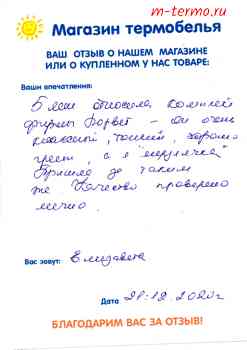 m-termo.ru
Магазин термобелья
ВАШ ОТЗЫВ О НАШЕМ МАГАЗИНЕ
ИЛИ О КУПЛЕННОМ У НАС ТОВАРЕ:
Ваши впечатления:
5 лет относила комплект
фирмы Норвег – он очень
классный, тонкий, хорошо
греет, а я "мерзлячка"
Пришла за таким
же. Качество проверено
лично.
Вас зовут: Елизавета
Дата 28.12.2020г
БЛАГОДАРИМ ВАС ЗА ОТЗЫВ!